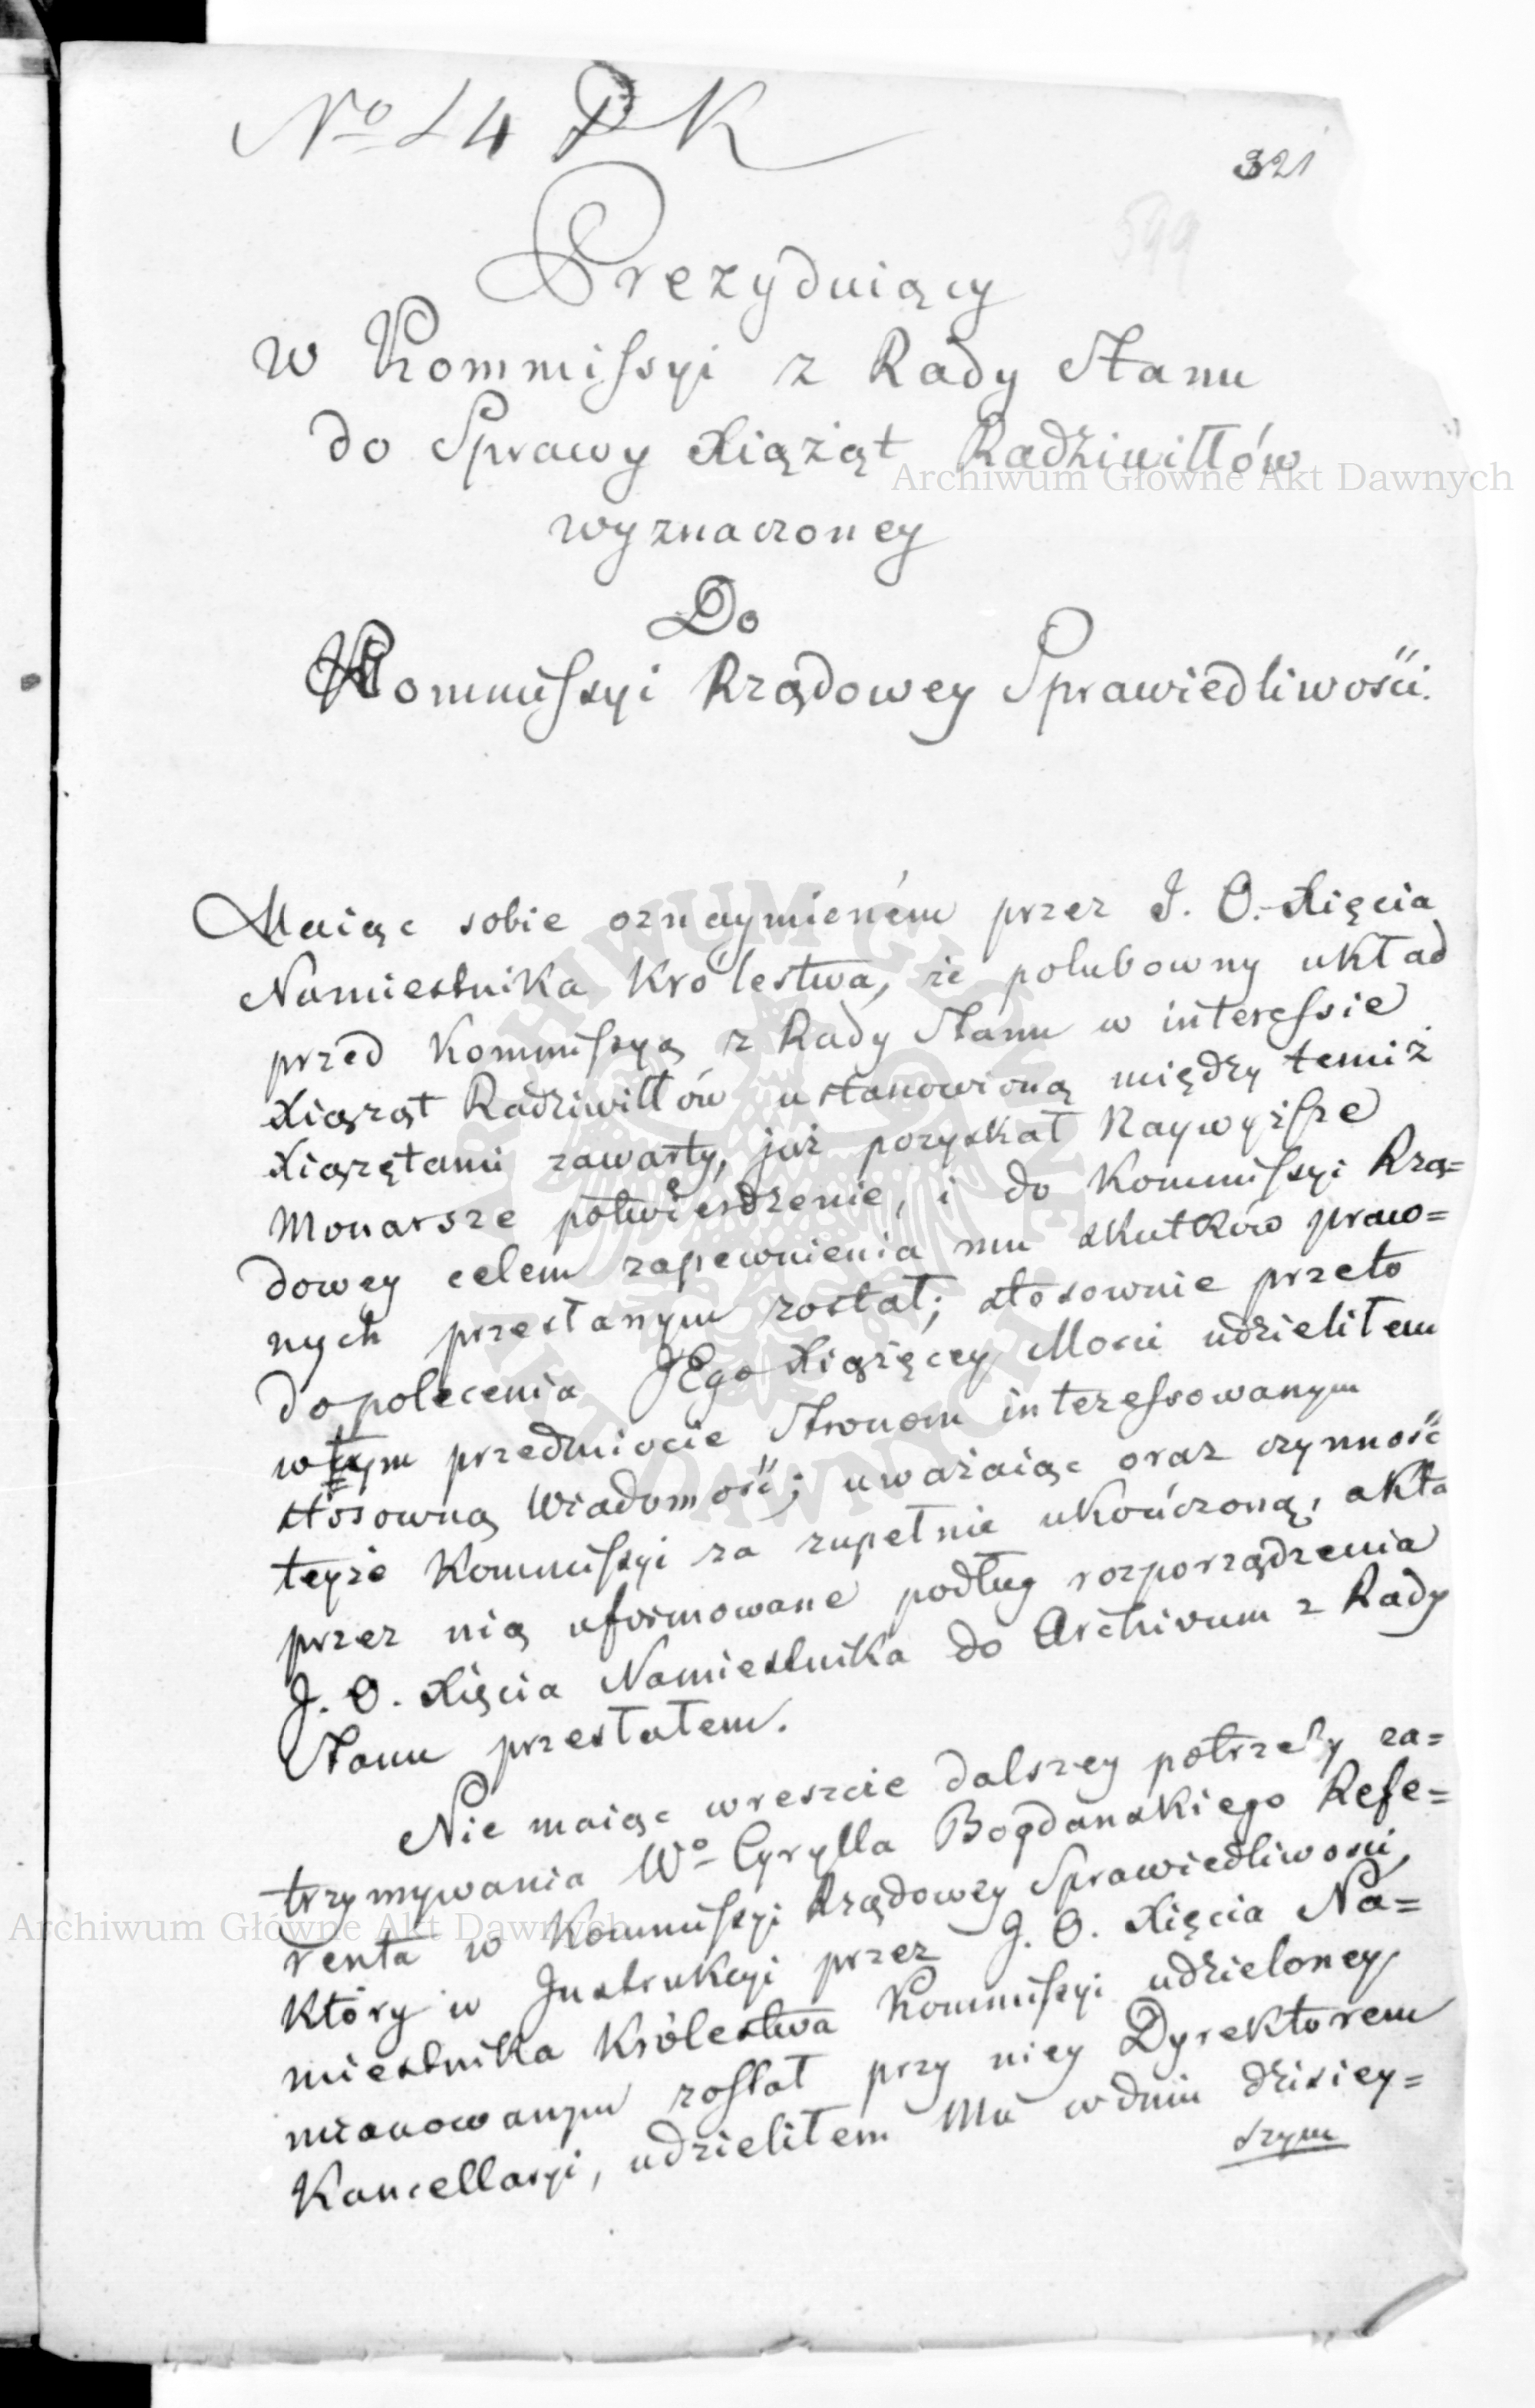 No 14 PK
321
599
Prezyduiący
W Kommissyi z Rady Stanu
do Sprawy Xiążąt Radziwiłłów
wyznaczoney
Do
Kommissyi Rządowey Sprawiedliwości.
Maiąc sobie oznaymieném przez J. O. Xięcia
Namiestnika Królestwa, że polubowny układ
przed Kommissyą z Rady Stanu w interessie
Xiąząt Radziwiłłów ustanowioną między temiż
Xiązętami zawarty, już pozyskał Naywyższe
Monarsze potwierdzenie, i do Kommissyi Rzą=
dowey celem zapewnienia mu skutków praw=
nych przesłanym został; stosownie przeto
do polecenia JEgo Xiążęcey Mości udzieliłem
w tym przedmiocie Stronom interessowanym
stosowną Wiadomość; uważaiąc oraz czynność
teyże Kommissyi za zupełnie ukończoną, akta
przez nią uformowane podług rozporządzenia
J. O. Xięcia Namiestnika do Archivum z Rady
Stanu przesłałem.
Nie maiąc wreszcie dalszey potrzeby za=
trzymywania Wo Cyrylla Bogdanskiego Refe=
renta w Kommissyi Rządowey Sprawiedliwości,
który w Instrukcyi przez J. O. Xięcia Na=
miestnika Królestwa Kommissyi udzieloney,
mianowanym został przy niey Dyrektorem
Kancellaryi, udzieliłem Mu w dniu dzisiey=
szym
Archiwum Główne Akt Dawnych
Archiwum Główne Akt Dawnych
ARCHIWUM GŁÓWNE AKT DAWNYCH